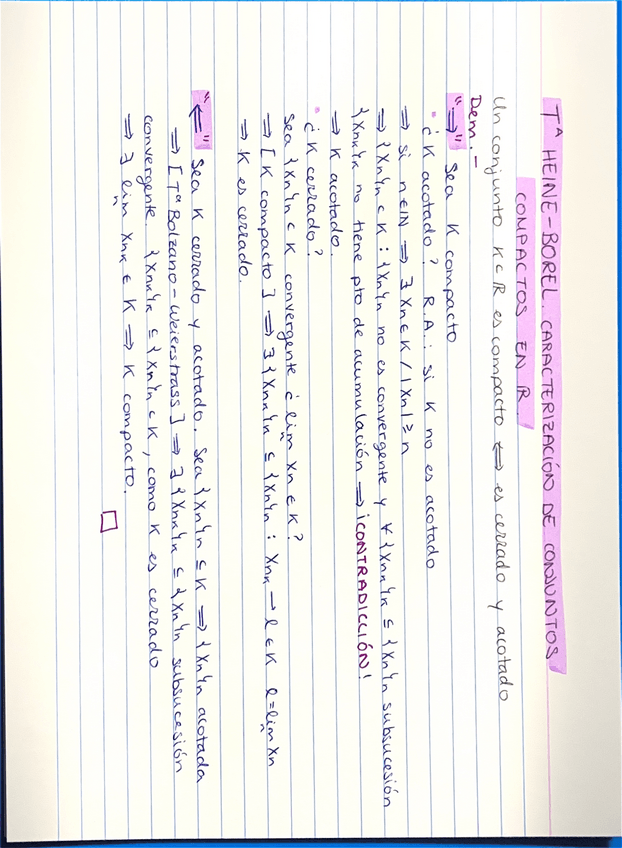 Tª HEINE-BOREL CARACTERIZACIÓN DE CONJUNTOS
COMPACTOS EN ℝ.
Un conjunto K⊂ℝ es compacto ⟺ es cerrado y acotado
Dem.-
"⟹" Sea K compacto
· ¿K acotado? R.A.: si K no es acotado
⟹ si n∈ℕ ⟹ ∃ Xn∈K / |Xn| ≥ n
⟹ {Xn}n ⊂ K : {Xn}n no es convergente y ∀ {Xnk}k ⊆ {Xn}n subsucesión
{Xnk}k no tiene pto de acumulación ⟹ ¡CONTRADICCIÓN!
⟹ K acotado.
· ¿K cerrado?
Sea {Xn}n ⊂ K convergente ¿ lim Xn ∈ K?
⟹ [K compacto] ⟹ ∃ {Xnk}k ⊆ {Xn}n : Xnk → l ∈ K l = lim Xn
⟹ K es cerrado.
"⟸" Sea K cerrado y acotado. Sea {Xn}n ⊆ K ⟹ {Xn}n acotada
⟹ [Tª Bolzano-Weierstrass] ⟹ ∃ {Xnk}k ⊆ {Xn}n subsucesión
convergente. {Xnk}k ⊆ {Xn}n ⊂ K, como K es cerrado
⟹ ∃ lim Xnk ∈ K ⟹ K compacto.
□